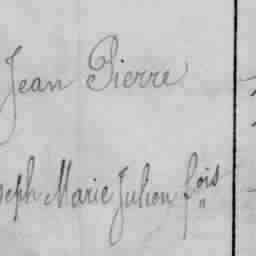 Jean Pierre
seph Marie Julien fois